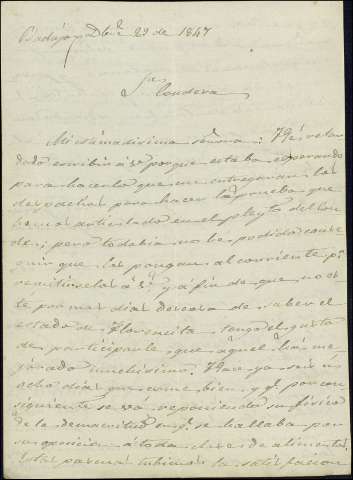 Badajoz Dbre 29 de 1847
Sra Condesa
Mi estimadisima señora: He retar
dado escribir á V. porque estaba esperando
para hacerlo que me entregaran los
despachos para hacer la prueba que
hemos articulado en el pleyto del Con
de; pero todabia no hé podido conse
guir que los pongan al corriente pa
remitirselos á V.; y á fin de que no es
te por mas dias deseosa de saber el
estado de Florencita tengo el gusto
de participarle que aquel há me
jorado muchisimo. Hace ya seis ú
ocho dias que come bien, y pr. con
siguiente se vá reponiendo su fisico
de la demacritud en qe. se hallaba por
su oposicion á toda clase de alimentos.
Estas pascuas tubimos la satisfaccion